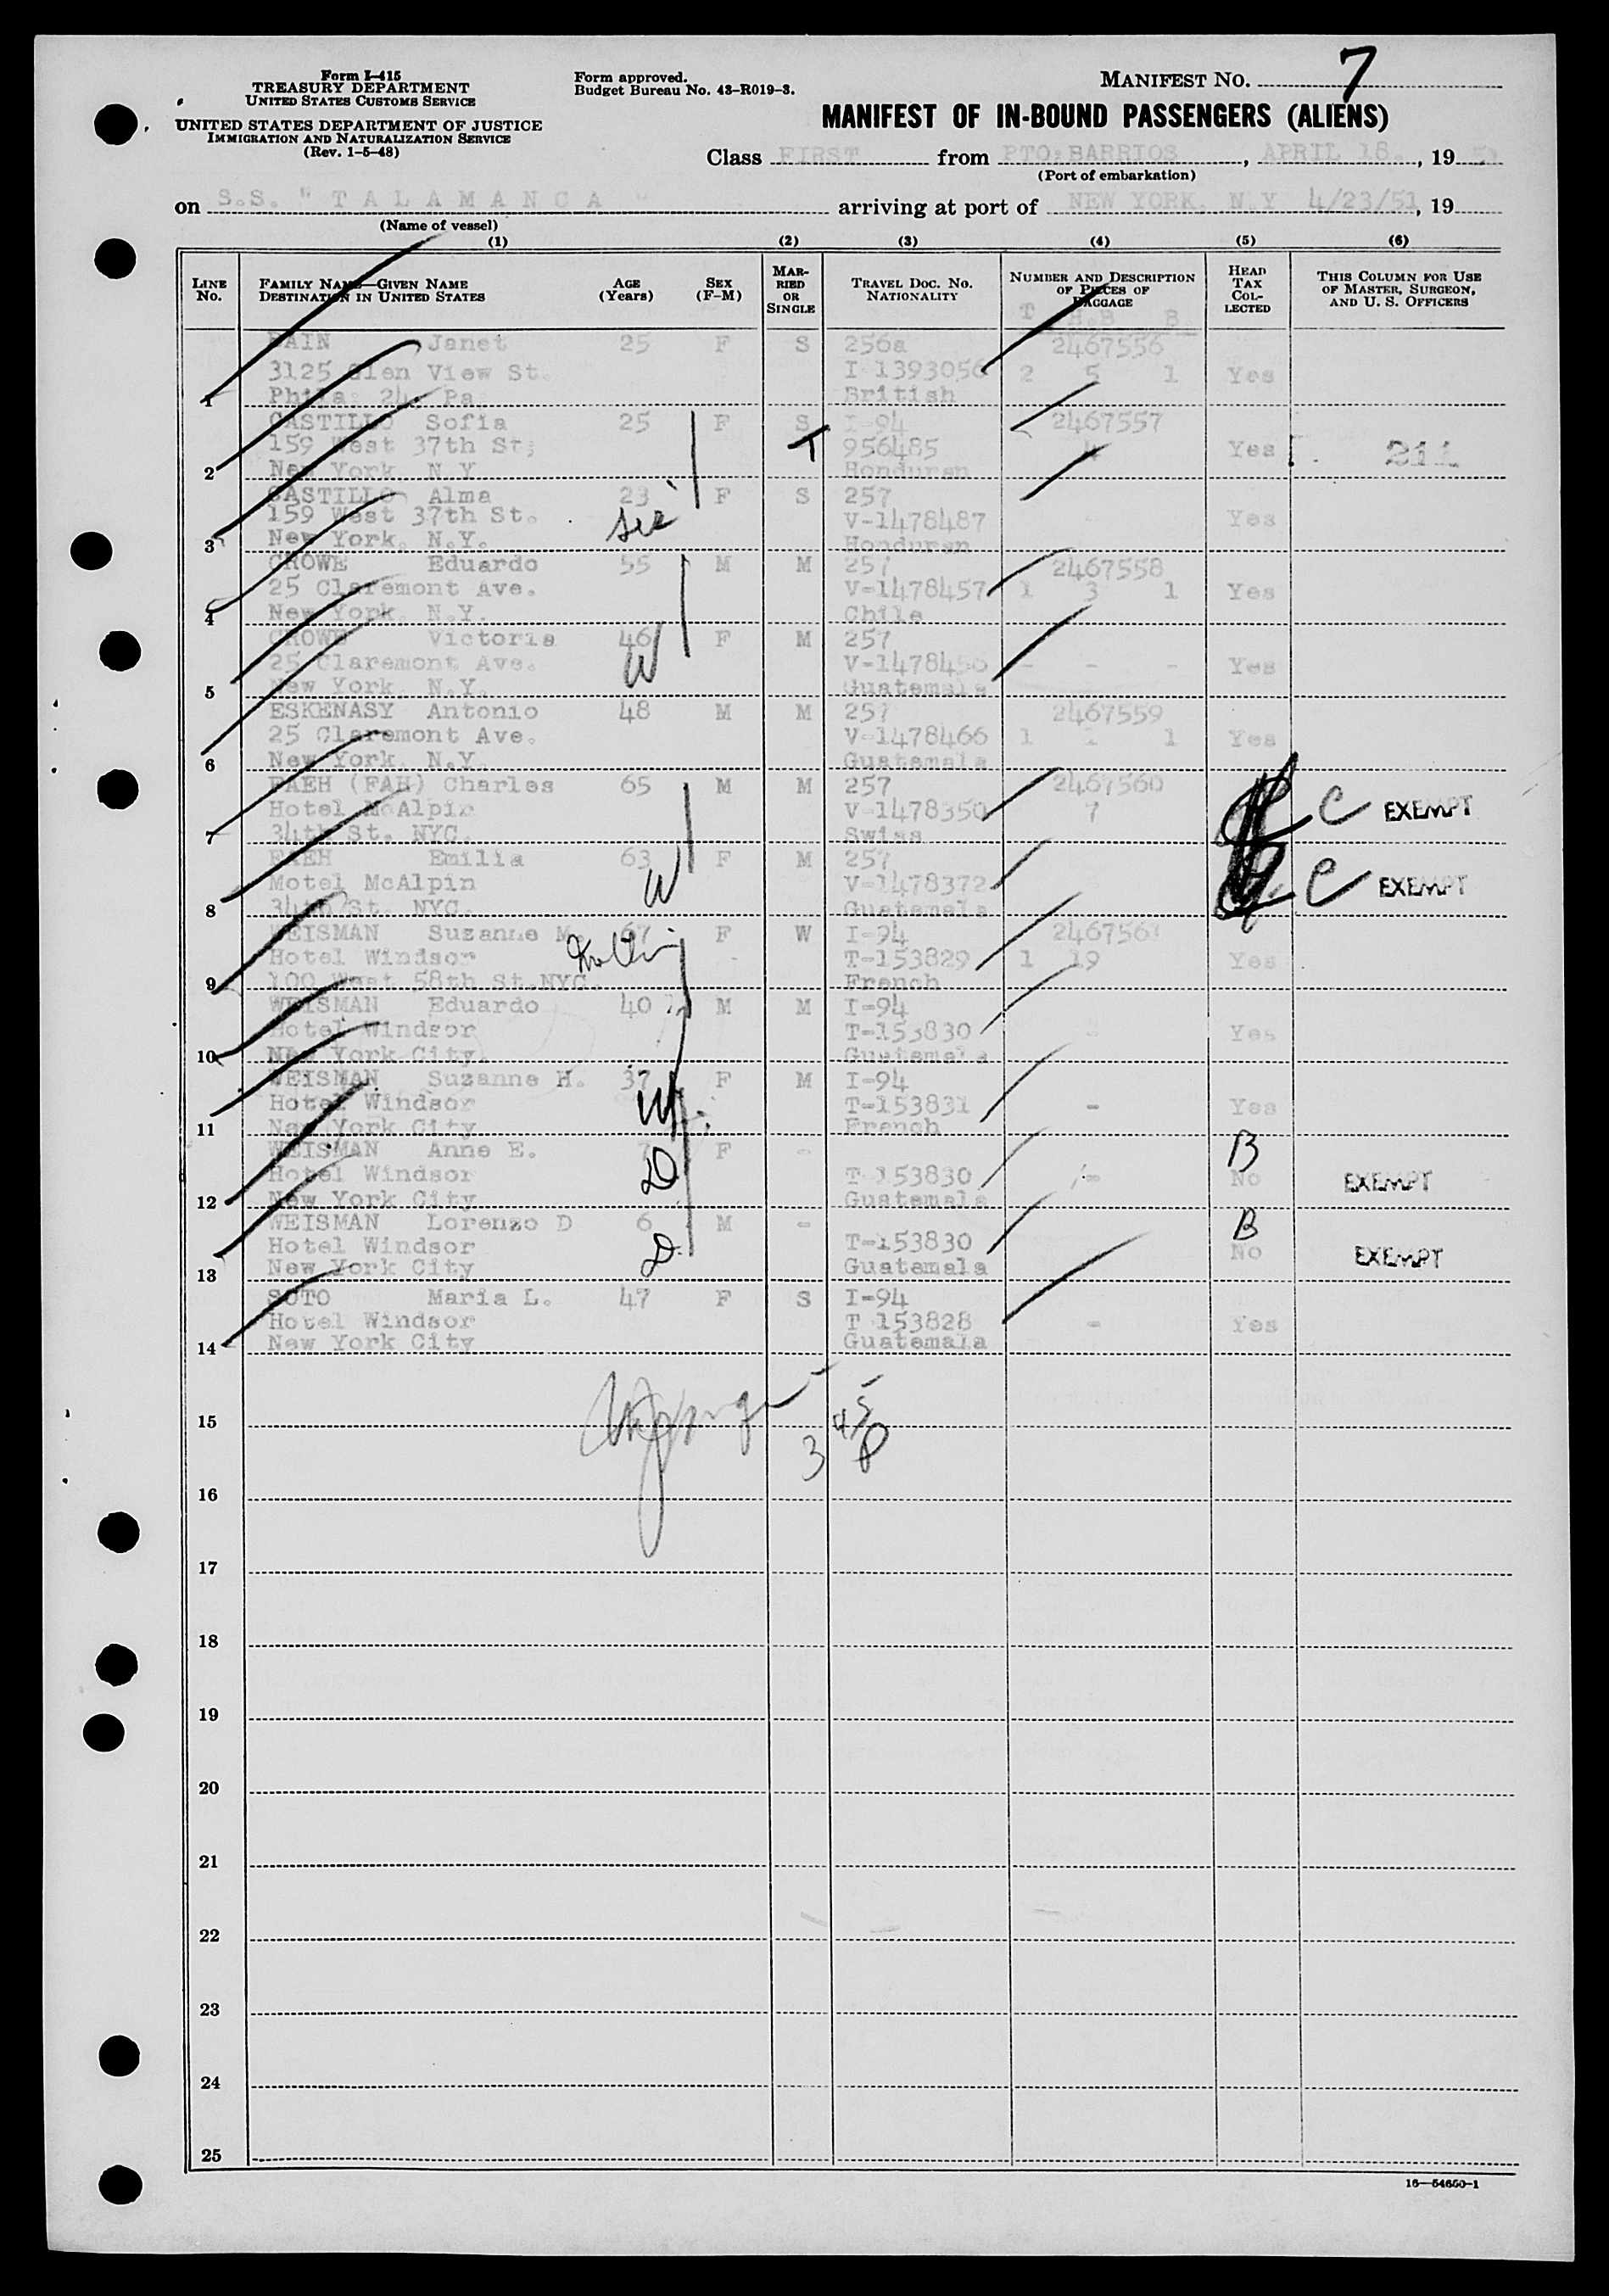 Form I-415
TREASURY DEPARTMENT
UNITED STATES CUSTOMS SERVICE
UNITED STATES DEPARTMENT OF JUSTICE
IMMIGRATION AND NATURALIZATION SERVICE
(Rev. 1-5-48)
Form approved.
Budget Bureau No. 43-R019-3.
MANIFEST NO. 7
MANIFEST OF IN-BOUND PASSENGERS (ALIENS)
Class FIRST from PTO.BARRIOS, APRIL 18., 19 51
(Port of embarkation)
on S.S. "TALAMANCA" arriving at port of NEW YORK, N.Y 4/23/51, 19
(Name of vessel)
(1) (2) (3) (4) (5) (6)
LINE No.
FAMILY NAME—GIVEN NAME DESTINATION IN UNITED STATES
AGE (Years)
SEX (F-M)
MARRIED OR SINGLE
TRAVEL DOC. NO. NATIONALITY
NUMBER AND DESCRIPTION OF PIECES OF BAGGAGE
HEAD TAX COLLECTED
THIS COLUMN FOR USE OF MASTER, SURGEON, AND U. S. OFFICERS
T H.B B
BAIN Janet 25 F S 256a 2467556
3125 Glen View St. I 1393056 2 5 1 Yes
1 Phila. 24, Pa British
CASTILLO Sofia 25 F S I-94 2467557
159 West 37th St; T 956485 4 Yes 211
2 New York N.Y Honduran
CASTILLO Alma 23 F S 257
159 West 37th St. V-1478487 Yes
3 New York. N.Y. Honduran
CROWE Eduardo 55 M M 257 2467558
25 Claremont Ave. V-1478457 1 3 1 Yes
4 New York. N.Y. Chile
CROWE Victoria 46 F M 257
25 Claremont Ave. W V-1478456 - - - Yes
5 New York N.Y. Guatemala
ESKENASY Antonio 48 M M 257 2467559
25 Claremont Ave. V-1478466 1 1 1 Yes
6 New York N.Y. Guatemala
FAEH (FAH) Charles 65 M M 257 2467560
Hotel McAlpin V-1478350 7 C EXEMPT
7 34th St. NYC. Swiss
FAEH Emilia 63 F M 257
Motel McAlpin W V-1478372 C EXEMPT
8 34th St. NYC. Guatemala
WEISMAN Suzanne M. 67 F W I-94 2467561
Hotel Windsor T-153829 1 19 Yes
9 100 West 58th St.NYC. French
WEISMAN Eduardo 40 M M I-94
Hotel Windsor T-153830 Yes
10 New York City. Guatemala
WEISMAN Suzanne H. 37 F M I-94
Hotel Windsor W T-153831 - Yes
11 New York City French
WEISMAN Anne E. 7 F - B
Hotel Windsor D T-153830 - No EXEMPT
12 New York City Guatemala
WEISMAN Lorenzo D 6 M - B
Hotel Windsor D T-153830 No EXEMPT
13 New York City Guatemala
SOTO Maria L. 47 F S I-94
Hotel Windsor T 153828 - Yes
14 New York City Guatemala
15
16
17
18
19
20
21
22
23
24
25
16—54650-1